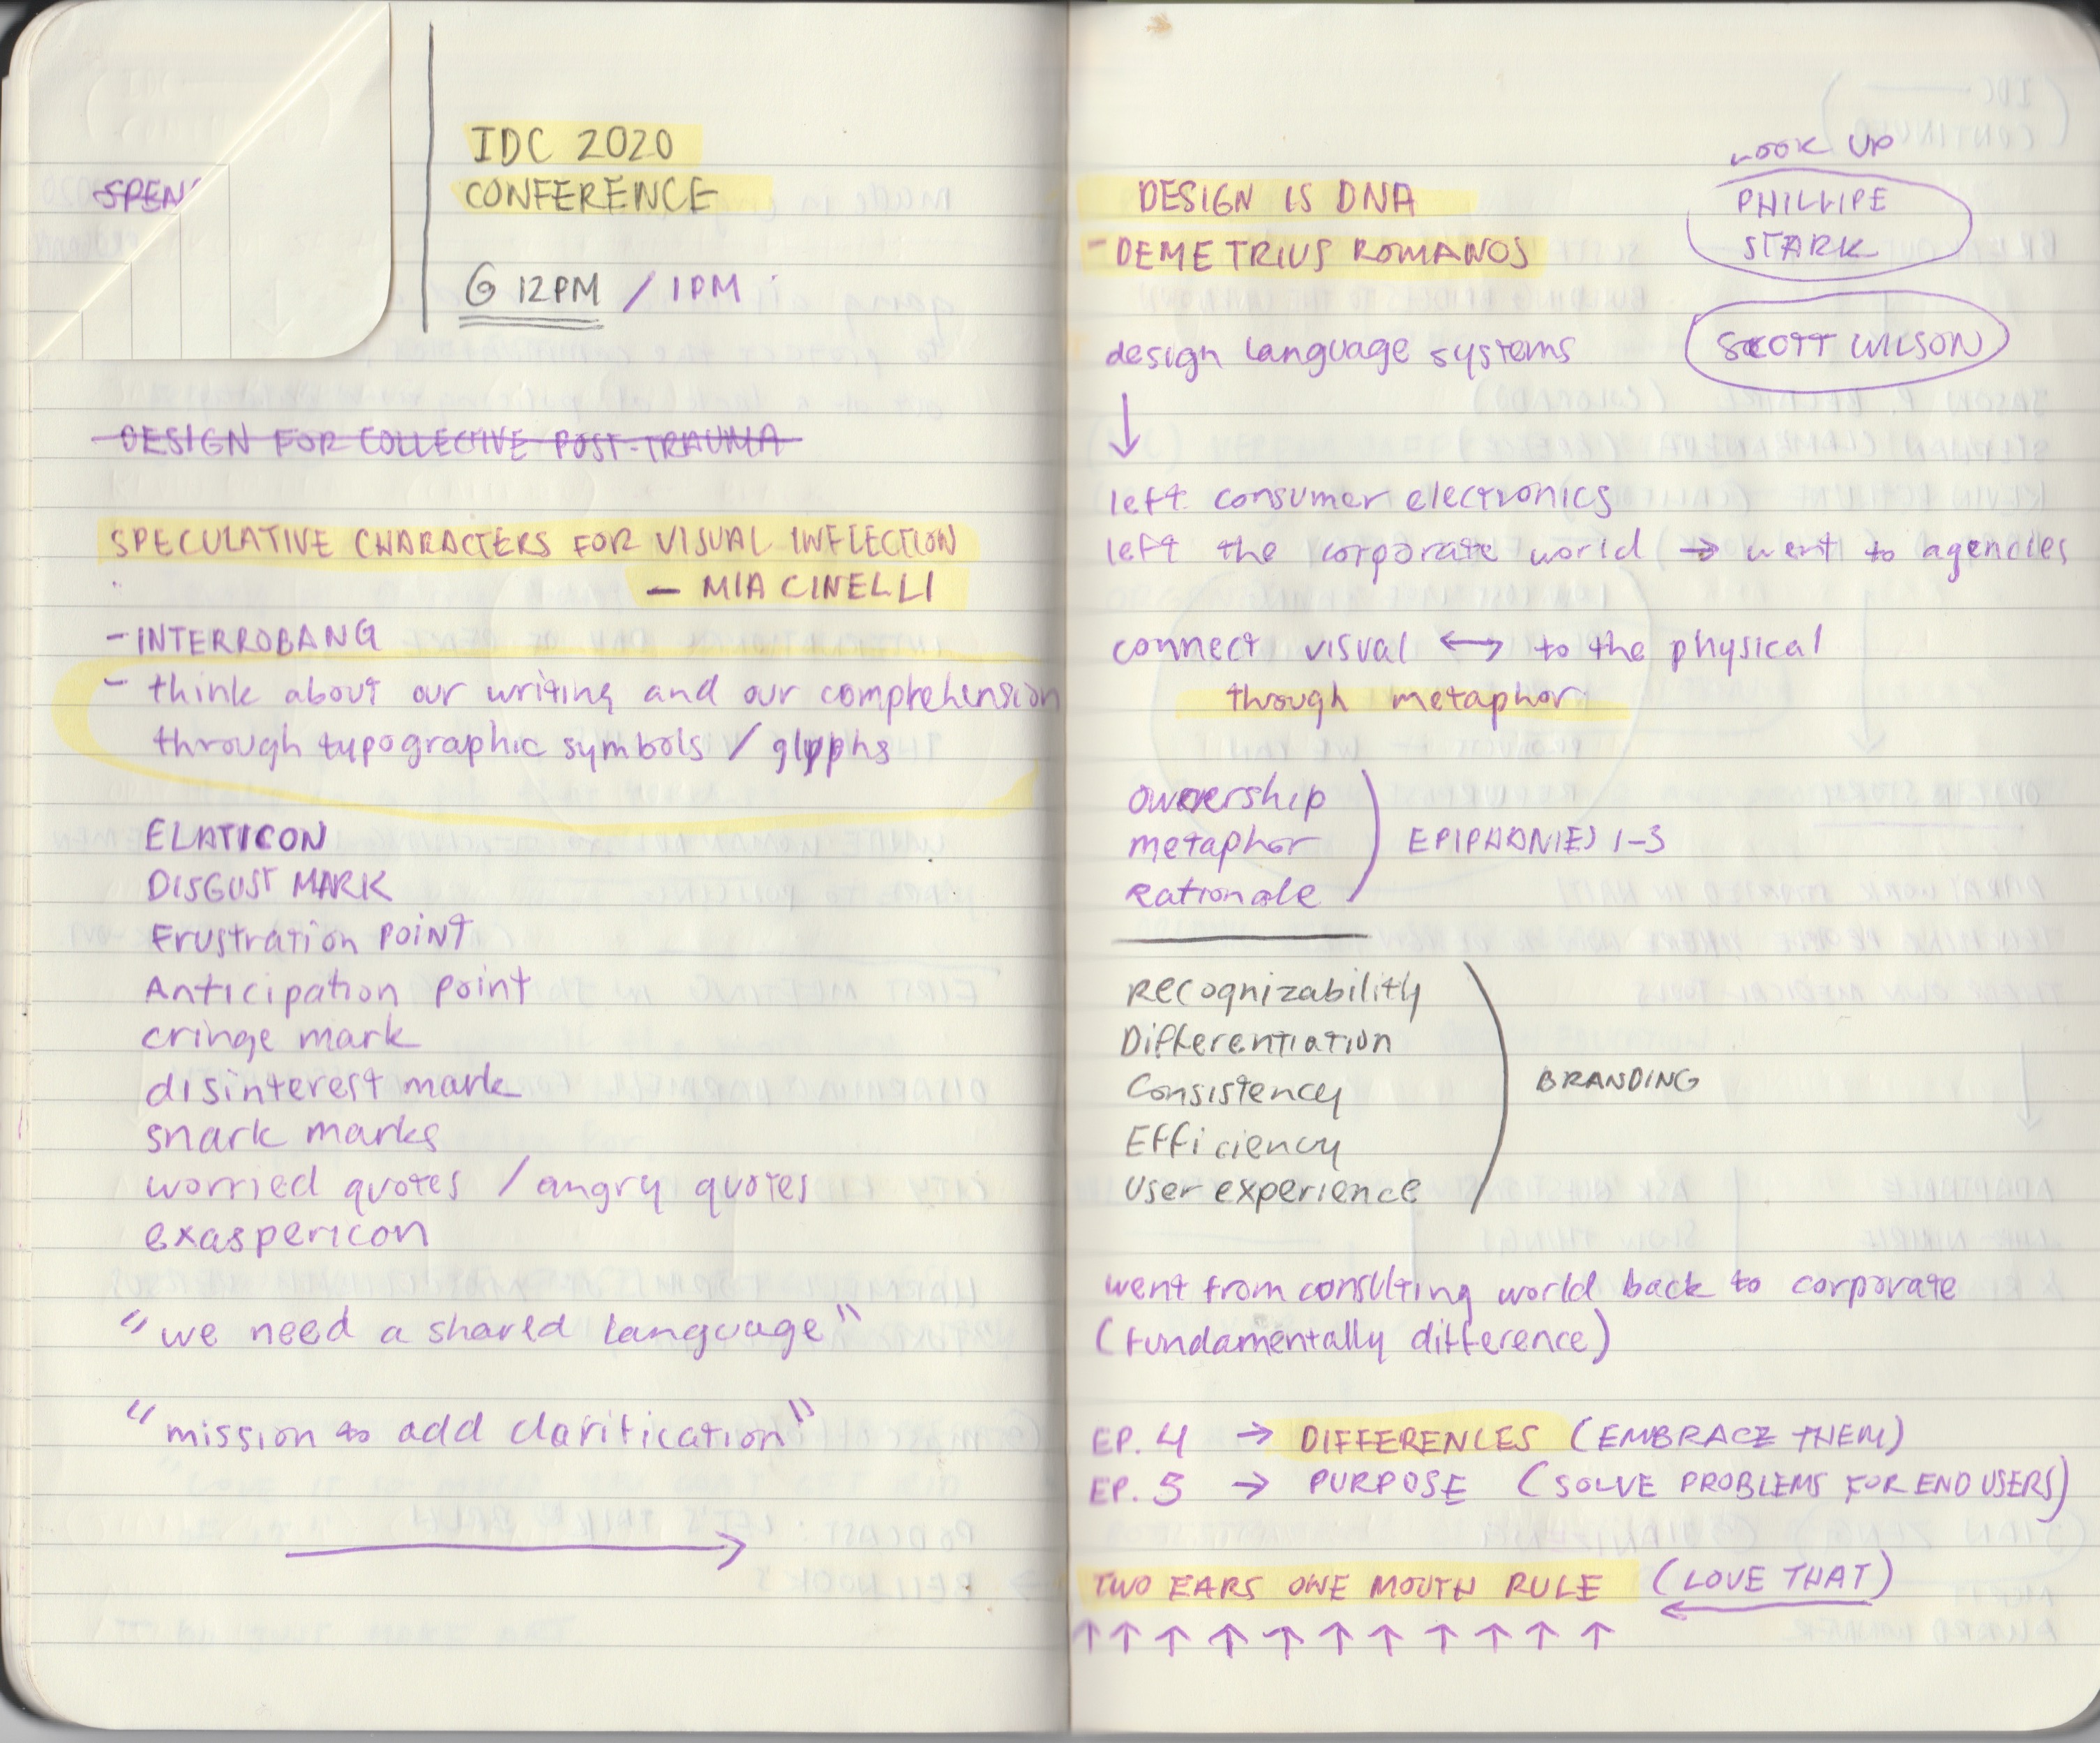 IDC 2020
CONFERENCE
@ 12PM / 1PM
SPEN
DESIGN FOR COLLECTIVE POST-TRAUMA
SPECULATIVE CHARACTERS FOR VISUAL INFLECTION
— MIA CINELLI
- INTERROBANG
- think about our writing and our comprehension
through typographic symbols / glyphs
ELATICON
DISGUST MARK
Frustration POINT
Anticipation point
cringe mark
disinterest mark
snark marks
worried quotes / angry quotes
exaspericon
"we need a shared language"
"mission to add clarification"
→
LOOK UP
PHILLIPE
STARK
SCOTT WILSON
DESIGN IS DNA
- DEMETRIUS ROMANOS
design language systems
↓
left consumer electronics
left the corporate world → went to agencies
connect visual ↔ to the physical
through metaphor
ownership
metaphor
Rationale
) EPIPHONIES 1-3
Recognizability
Differentiation
Consistency
Efficiency
User experience
) BRANDING
went from consulting world back to corporate
(fundamentally difference)
EP. 4 → DIFFERENCES (EMBRACE THEM)
EP. 5 → PURPOSE (SOLVE PROBLEMS FOR END USERS)
TWO EARS ONE MOUTH RULE (LOVE THAT)
↑ ↑ ↑ ↑ ↑ ↑ ↑ ↑ ↑ ↑ ↑